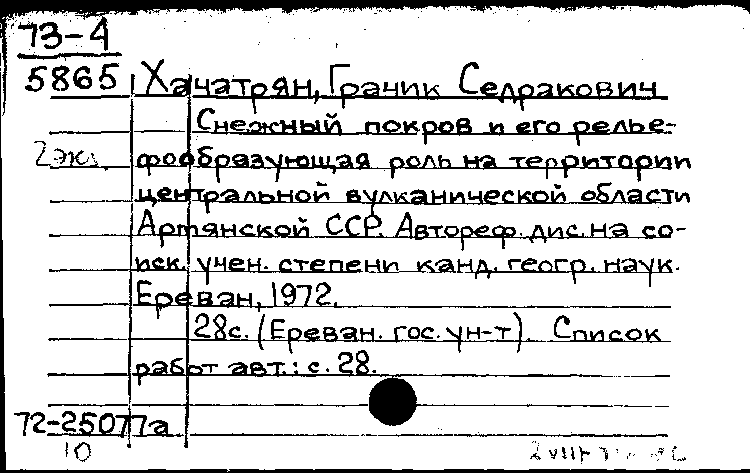 73-4
5865
Хачатрян, Грачик Седракович
Снежный покров и его релье-
2 экз.
фообразующая роль на территории
центральной вулканической области
Армянской ССР. Автореф. дис. на со-
иск. учен. степени канд. геогр. наук.
Ереван, 1972.
28с. (Ереван. гос. ун-т). Список
работ авт.: с. 28.
72-25077а
10